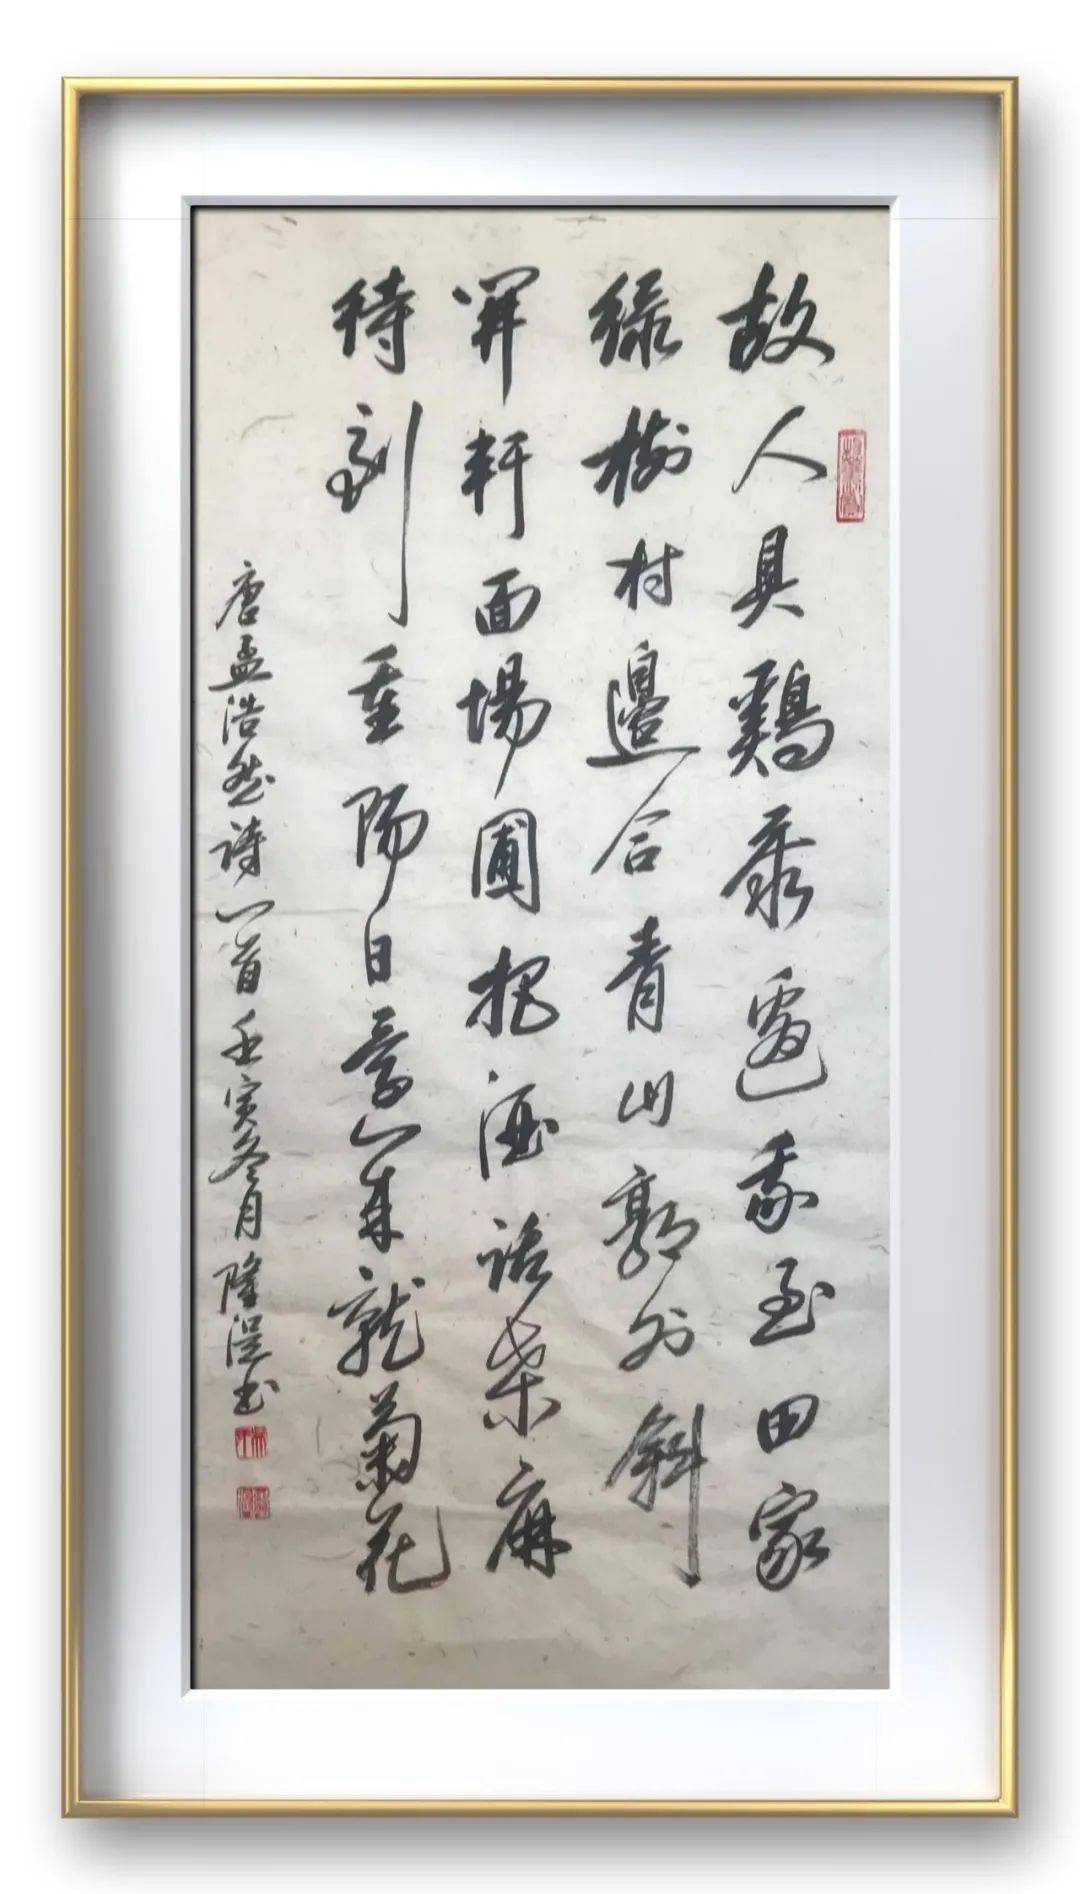 故人具鷄黍邀我至田家
緑樹村邊合青山郭外斜
開軒面場圃把酒話桑麻
待到重陽日還來就菊花
唐孟浩然詩一首壬寅冬月隆書